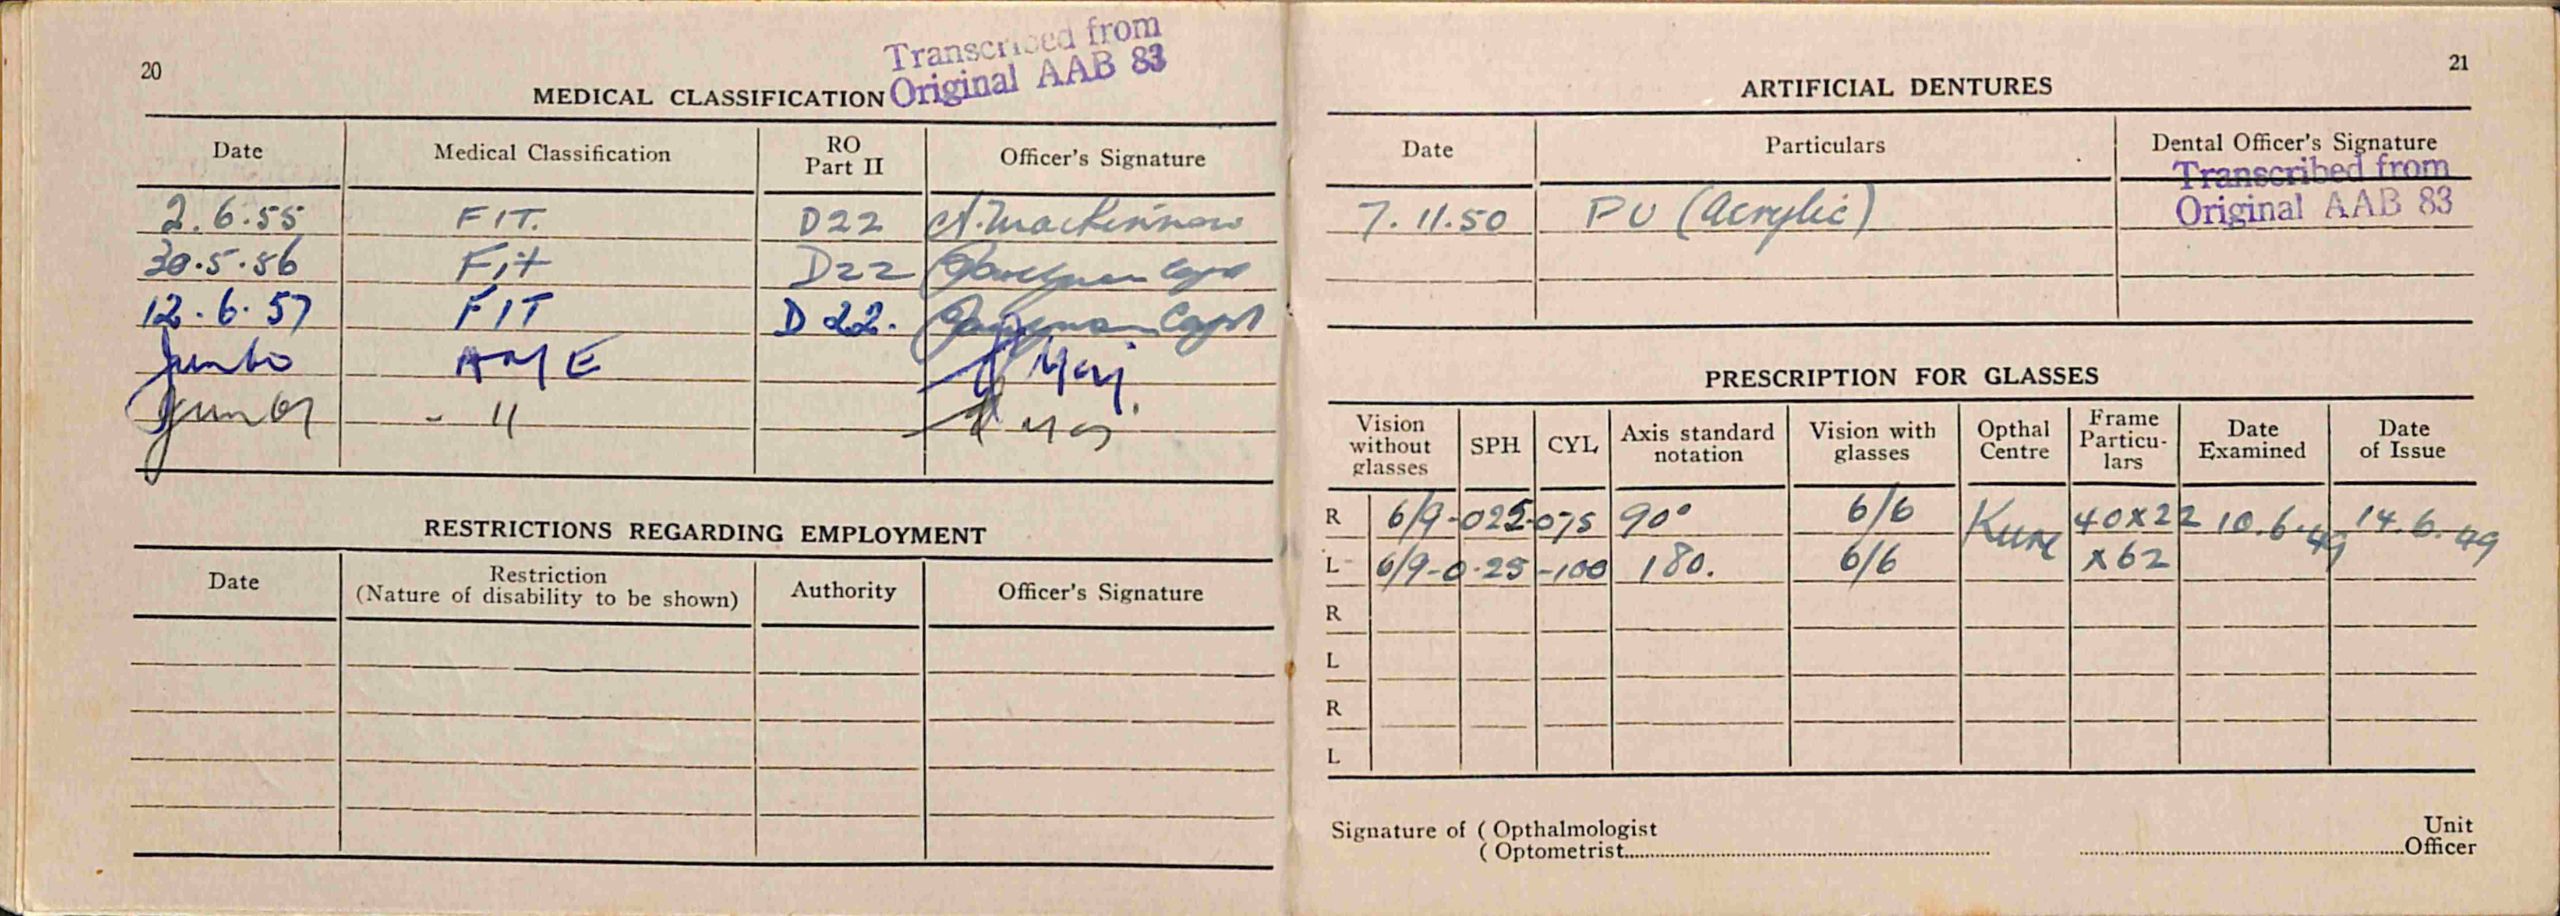 20
Transcribed from
Original AAB 83
MEDICAL CLASSIFICATION
Date Medical Classification RO Part II Officer's Signature
2.6.55 FIT. D22 A. MacKinnon
30.5.56 Fit D22 Capt
12.6.57 FIT D 22. Capt
Jun 60 AME Maj
Jun 61 - " Maj
RESTRICTIONS REGARDING EMPLOYMENT
Date Restriction (Nature of disability to be shown) Authority Officer's Signature
21
ARTIFICIAL DENTURES
Date Particulars Dental Officer's Signature
Transcribed from
Original AAB 83
7.11.50 PU (Acrylic)
PRESCRIPTION FOR GLASSES
Vision without glasses SPH CYL Axis standard notation Vision with glasses Opthal Centre Frame Particu-lars Date Examined Date of Issue
R 6/9 -025 -075 90° 6/6 Kure 40x22 10.6.49 14.6.49
L 6/9 -0.25 -100 180. 6/6 x62
R
L
R
L
Signature of ( Opthalmologist Unit
( Optometrist Officer